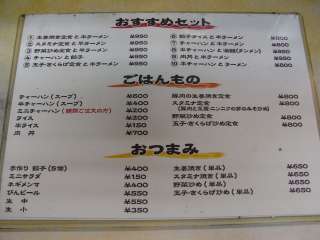 おすすめセット
① 生姜焼き定食と半ラーメン ¥950
② スタミナ定食と半ラーメン ¥950
③ 野菜炒め定食と半ラーメン ¥950
④ チャーハンと餃子 ¥950
⑤ 玉子・きくらげ定食と半ラーメン ¥950
⑥ 餃子ライスと半ラーメン ¥900
⑦ チャーハンと半ラーメン
⑧ チャーハンと半湯麺(タンメン)
⑨ 丼と半ラーメン
⑩ 半チャーハンと半ラーメン ¥800
ごはんもの
チャーハン(スープ) ¥600
半チャーハン(スープ) ¥400
ミニチャーハン(麺類ご注文の方) ¥200
ライス ¥200
半ライス ¥150
丼 ¥700
豚肉の生姜焼き定食 ¥800
スタミナ定食 ¥800
(豚肉と玉葱・ニンニクの芽のみそ炒め)
野菜炒め定食 ¥800
玉子・きくらげ炒め定食 ¥800
おつまみ
手作り餃子(5個) ¥400
ミニサラダ ¥150
ネギメンマ ¥400
びんビール ¥550
生 中 ¥550
生 小 ¥350
生姜焼き(単品) ¥650
スタミナ焼き(単品) ¥650
野菜炒め(単品) ¥650
玉子・きくらげ炒め(単品) ¥650